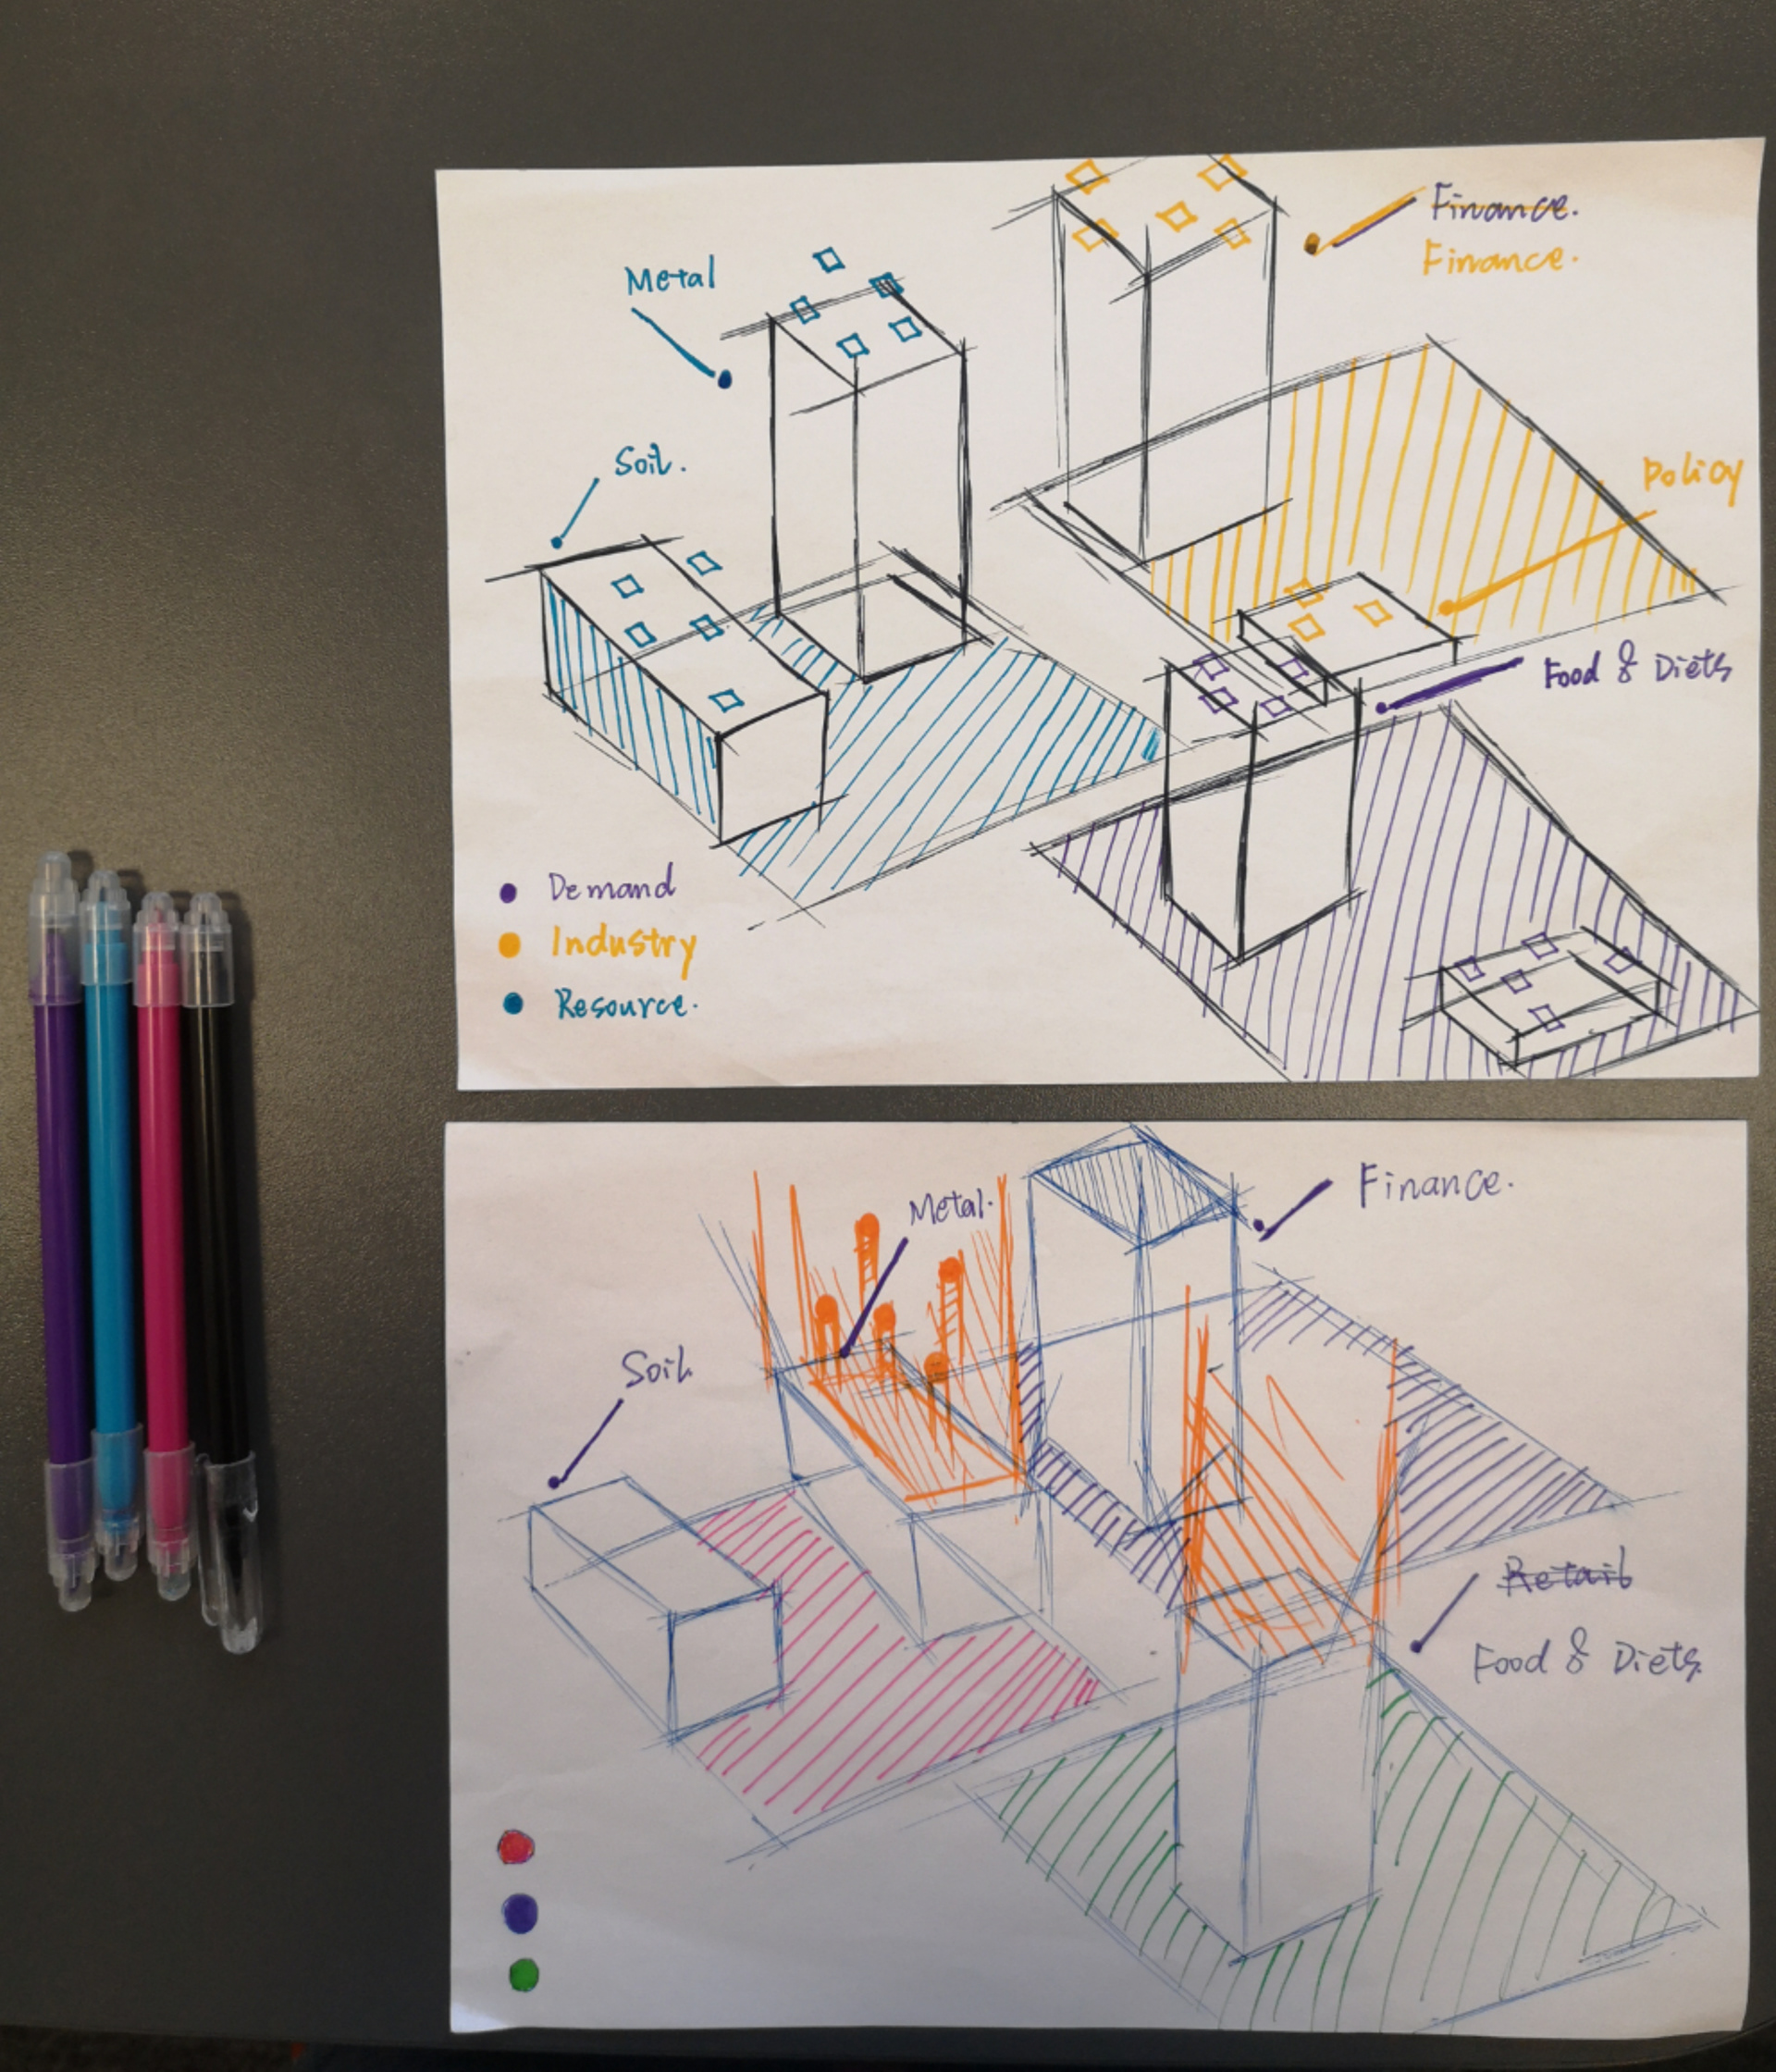 Finance.
Finance.
Metal
Soil.
Policy
Food & Diets
Demand
Industry
Resource.
Finance.
Metal.
Soil
Retail
Food & Diets